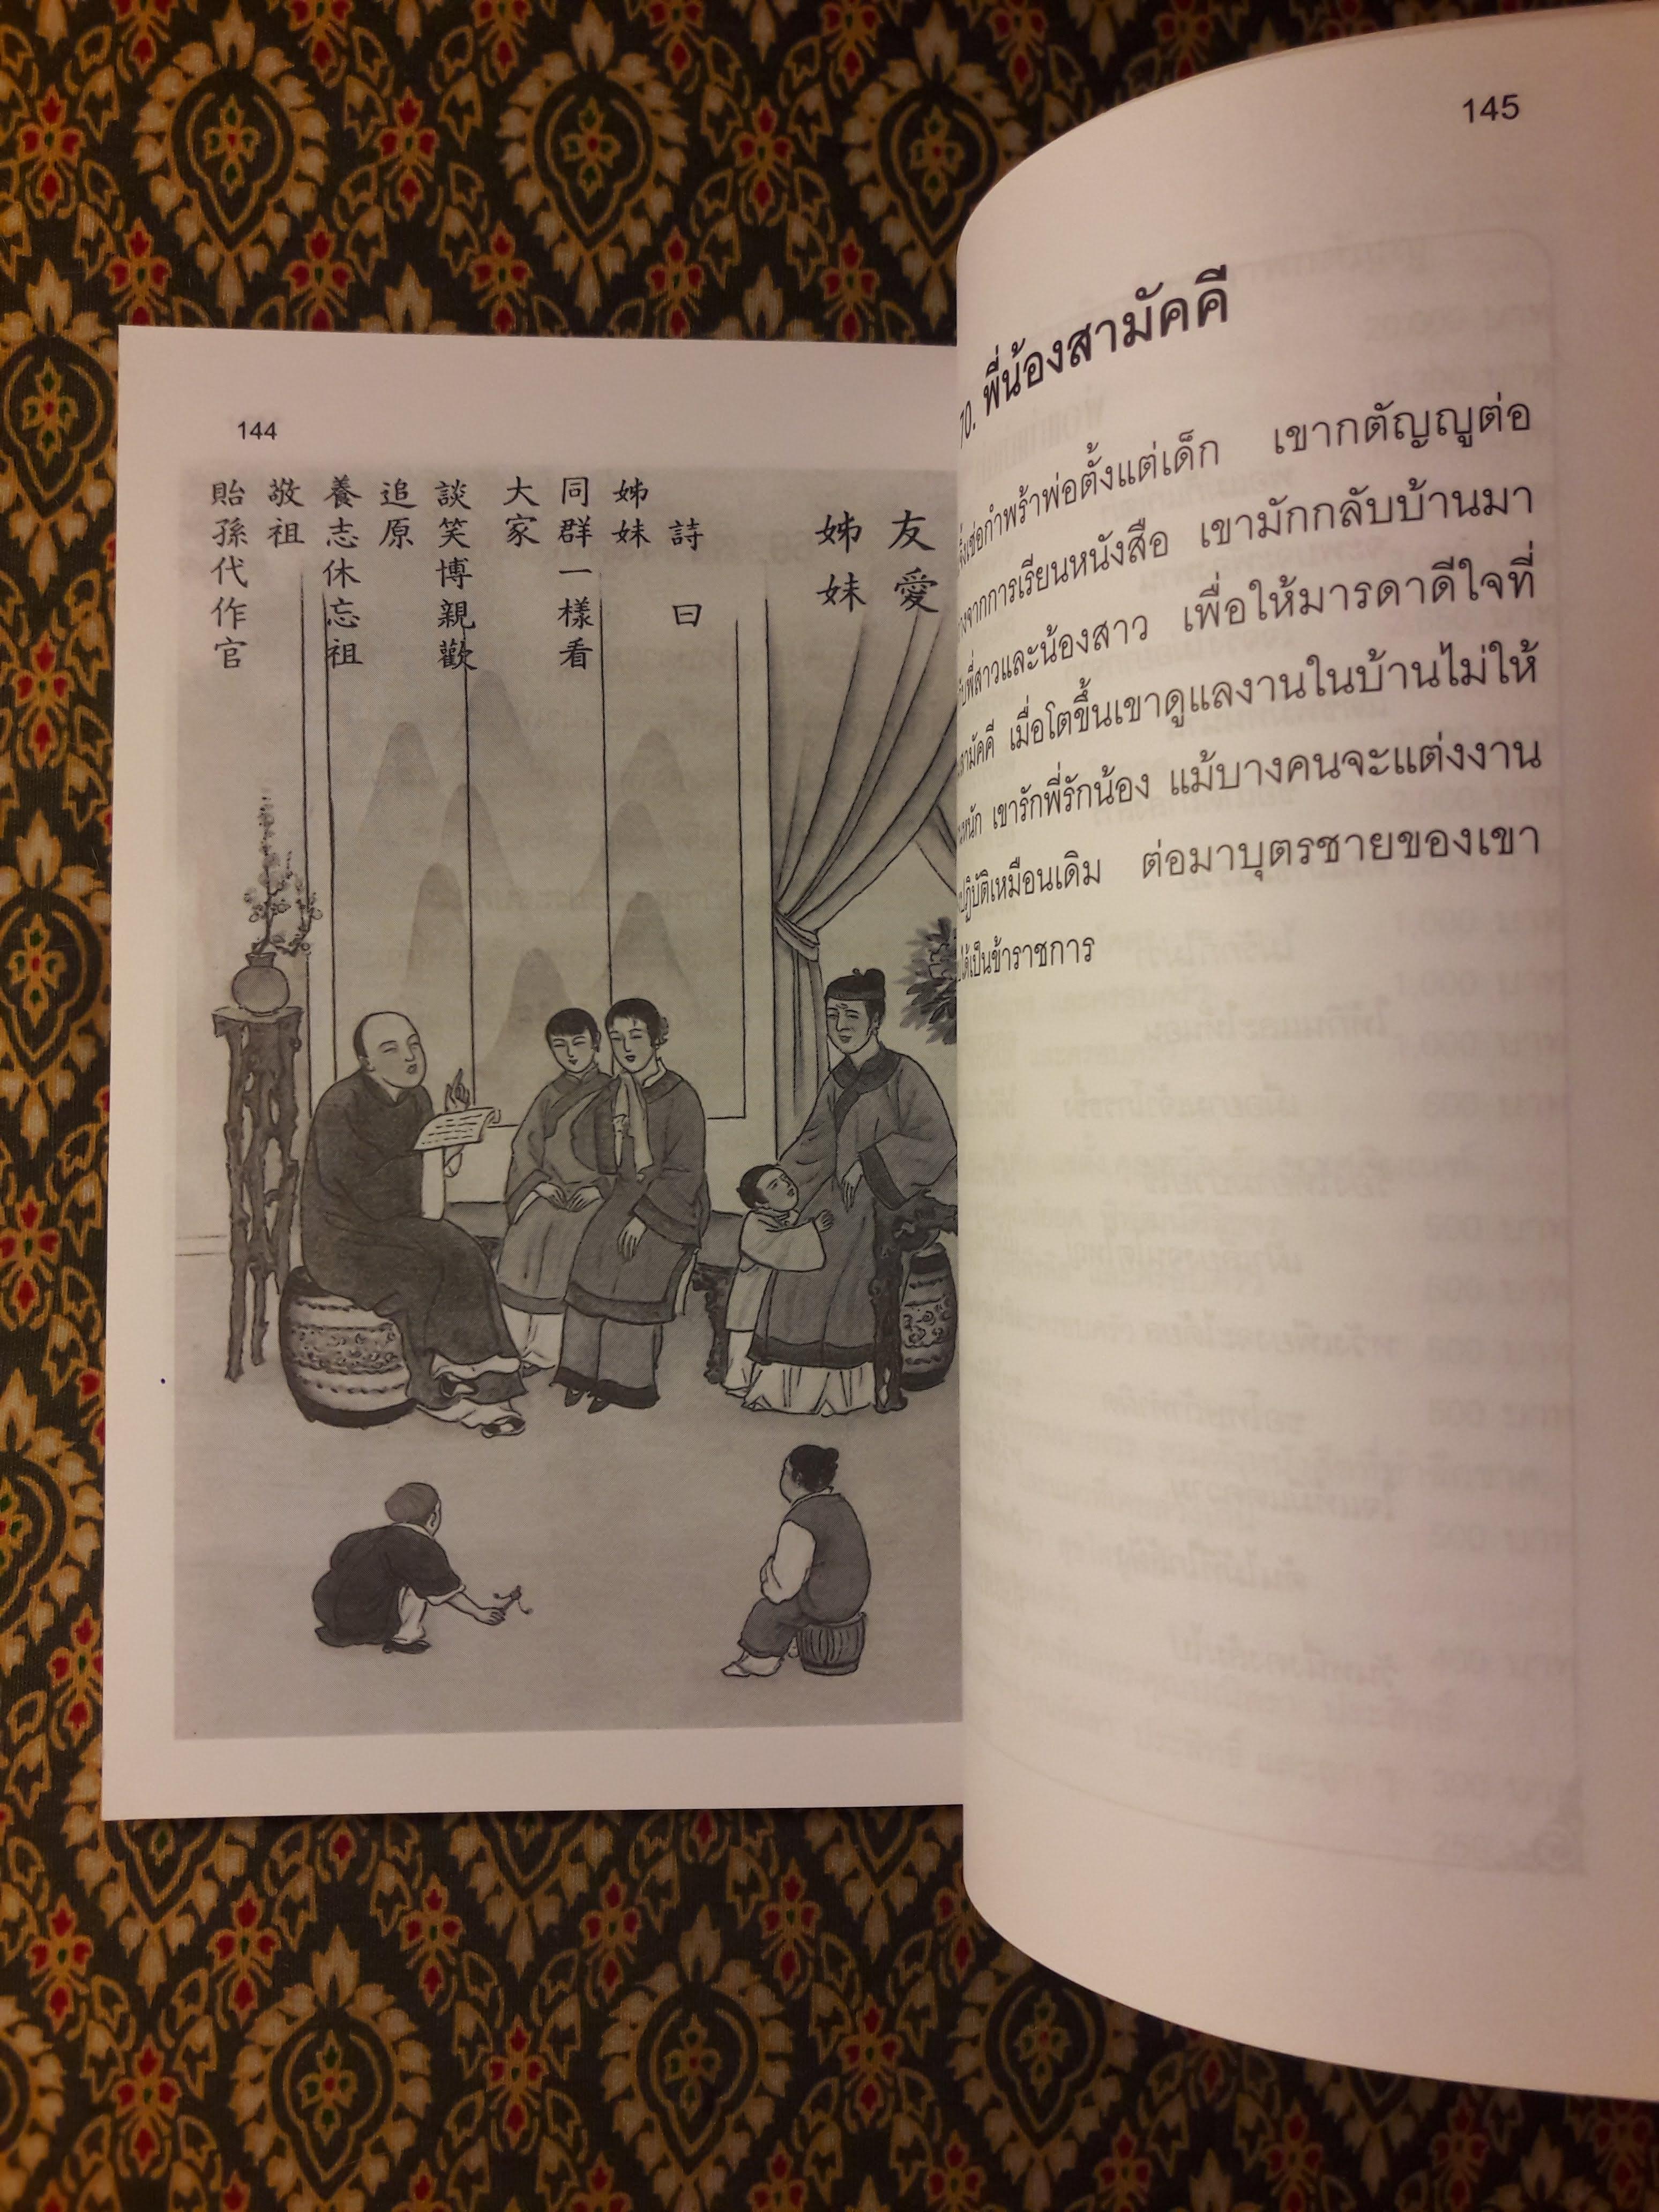 144
友愛
姊妹
詩曰
姊妹
同群一樣看
大家
談笑博親歡
追原
養志休忘祖
敬祖
貽孫代作官
145
70. พี่น้องสามัคคี
กำพร้าพ่อตั้งแต่เด็ก เขากตัญญูต่อ
จากการเรียนหนังสือ เขามักกลับบ้านมา
พี่สาวและน้องสาว เพื่อให้มารดาดีใจที่
สามัคคี เมื่อโตขึ้นเขาดูแลงานในบ้านไม่ให้
หนัก เขารักพี่รักน้อง แม้บางคนจะแต่งงาน
ปฏิบัติเหมือนเดิม ต่อมาบุตรชายของเขา
ได้เป็นข้าราชการ